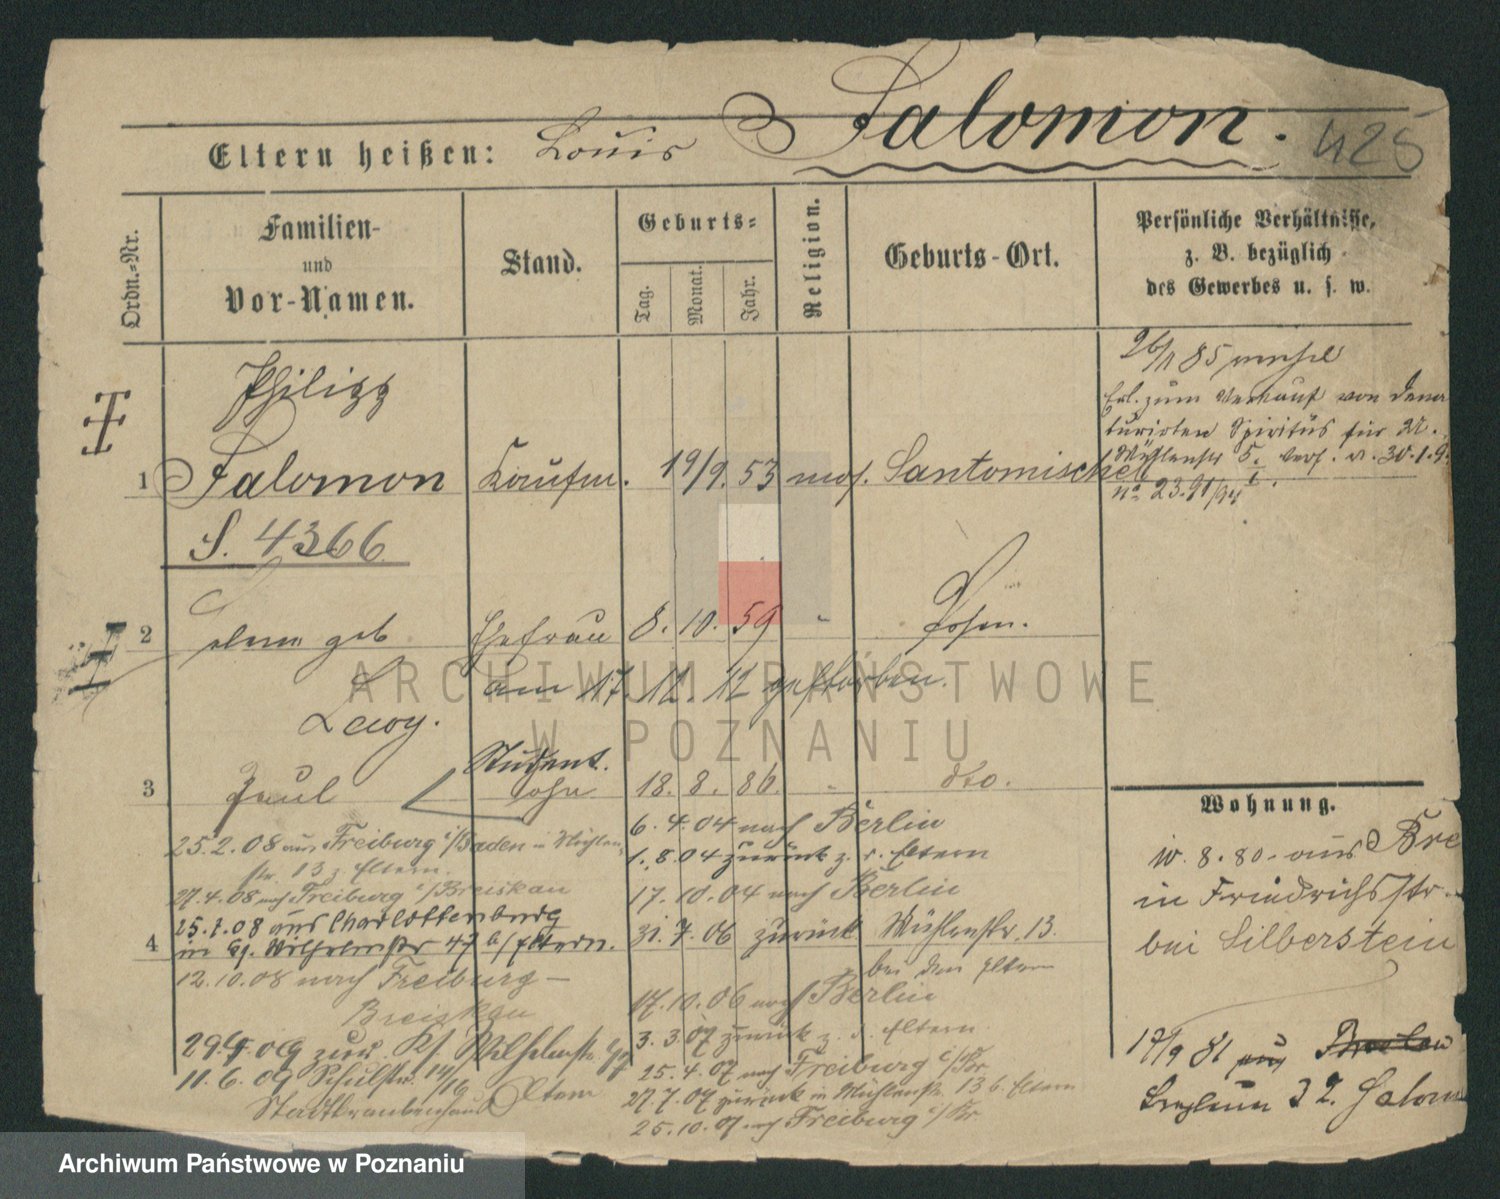 Salomon.
425
Eltern heißen: Louis
Ordn.-Nr.
Familien-
und
Vor-Namen.
Stand.
Geburts-
Tag.
Monat.
Jahr.
Religion.
Geburts-Ort.
Persönliche Verhältnisse,
z. B. bezüglich
des Gewerbes u. s. w.
Philipp
1 Salomon Kaufm. 19/9. 53 mos. Santomischel
S. 4366
26/1 85
Erl. zum Verkauf von dena
turirten Spiritus für
Mühlenstr 5. 30.1.9
No 23.91/94
2 geb Ehefrau 8. 10. 59 " Posen.
Lewy. am 17. 12. 12 gestorben.
3 Paul Student. Sohn 18. 8. 86. " dto.
6. 4. 04 nach Berlin
1. 8. 04 zurück z. d. Eltern
17. 10. 04 nach Berlin
31. 7. 06 zurück Mühlenstr. 13.
bei den Eltern
17. 10. 06 nach Berlin
3. 3. 07 zurück z. d. Eltern
25. 4. 07 nach Freiburg i/Br.
27. 7. 07 zurück in Mühlenstr. 13 b. Eltern
25. 10. 07 nach Freiburg i/Br.
25. 2. 08 aus Freiburg i/Baden in Mühlen
str. 13 z. Eltern.
27. 4. 08 nach Freiburg i/Breisgau
25. 7. 08 aus Charlottenburg
4 in Wilhelmstr 47 b/Eltern.
12. 10. 08 nach Freiburg –
Breisgau
29. 09 zur. Wilhelmstr.
11. 6. 09 Schulstr. 14/16 Eltern
Stadtkrankenhaus
Wohnung.
10. 8. 80. aus Bre
in Friedrichsstr.
bei Silberstein
19/9 81 aus Breslau
Breslau 32.
ARCHIWUM PAŃSTWOWE
W POZNANIU
Archiwum Państwowe w Poznaniu